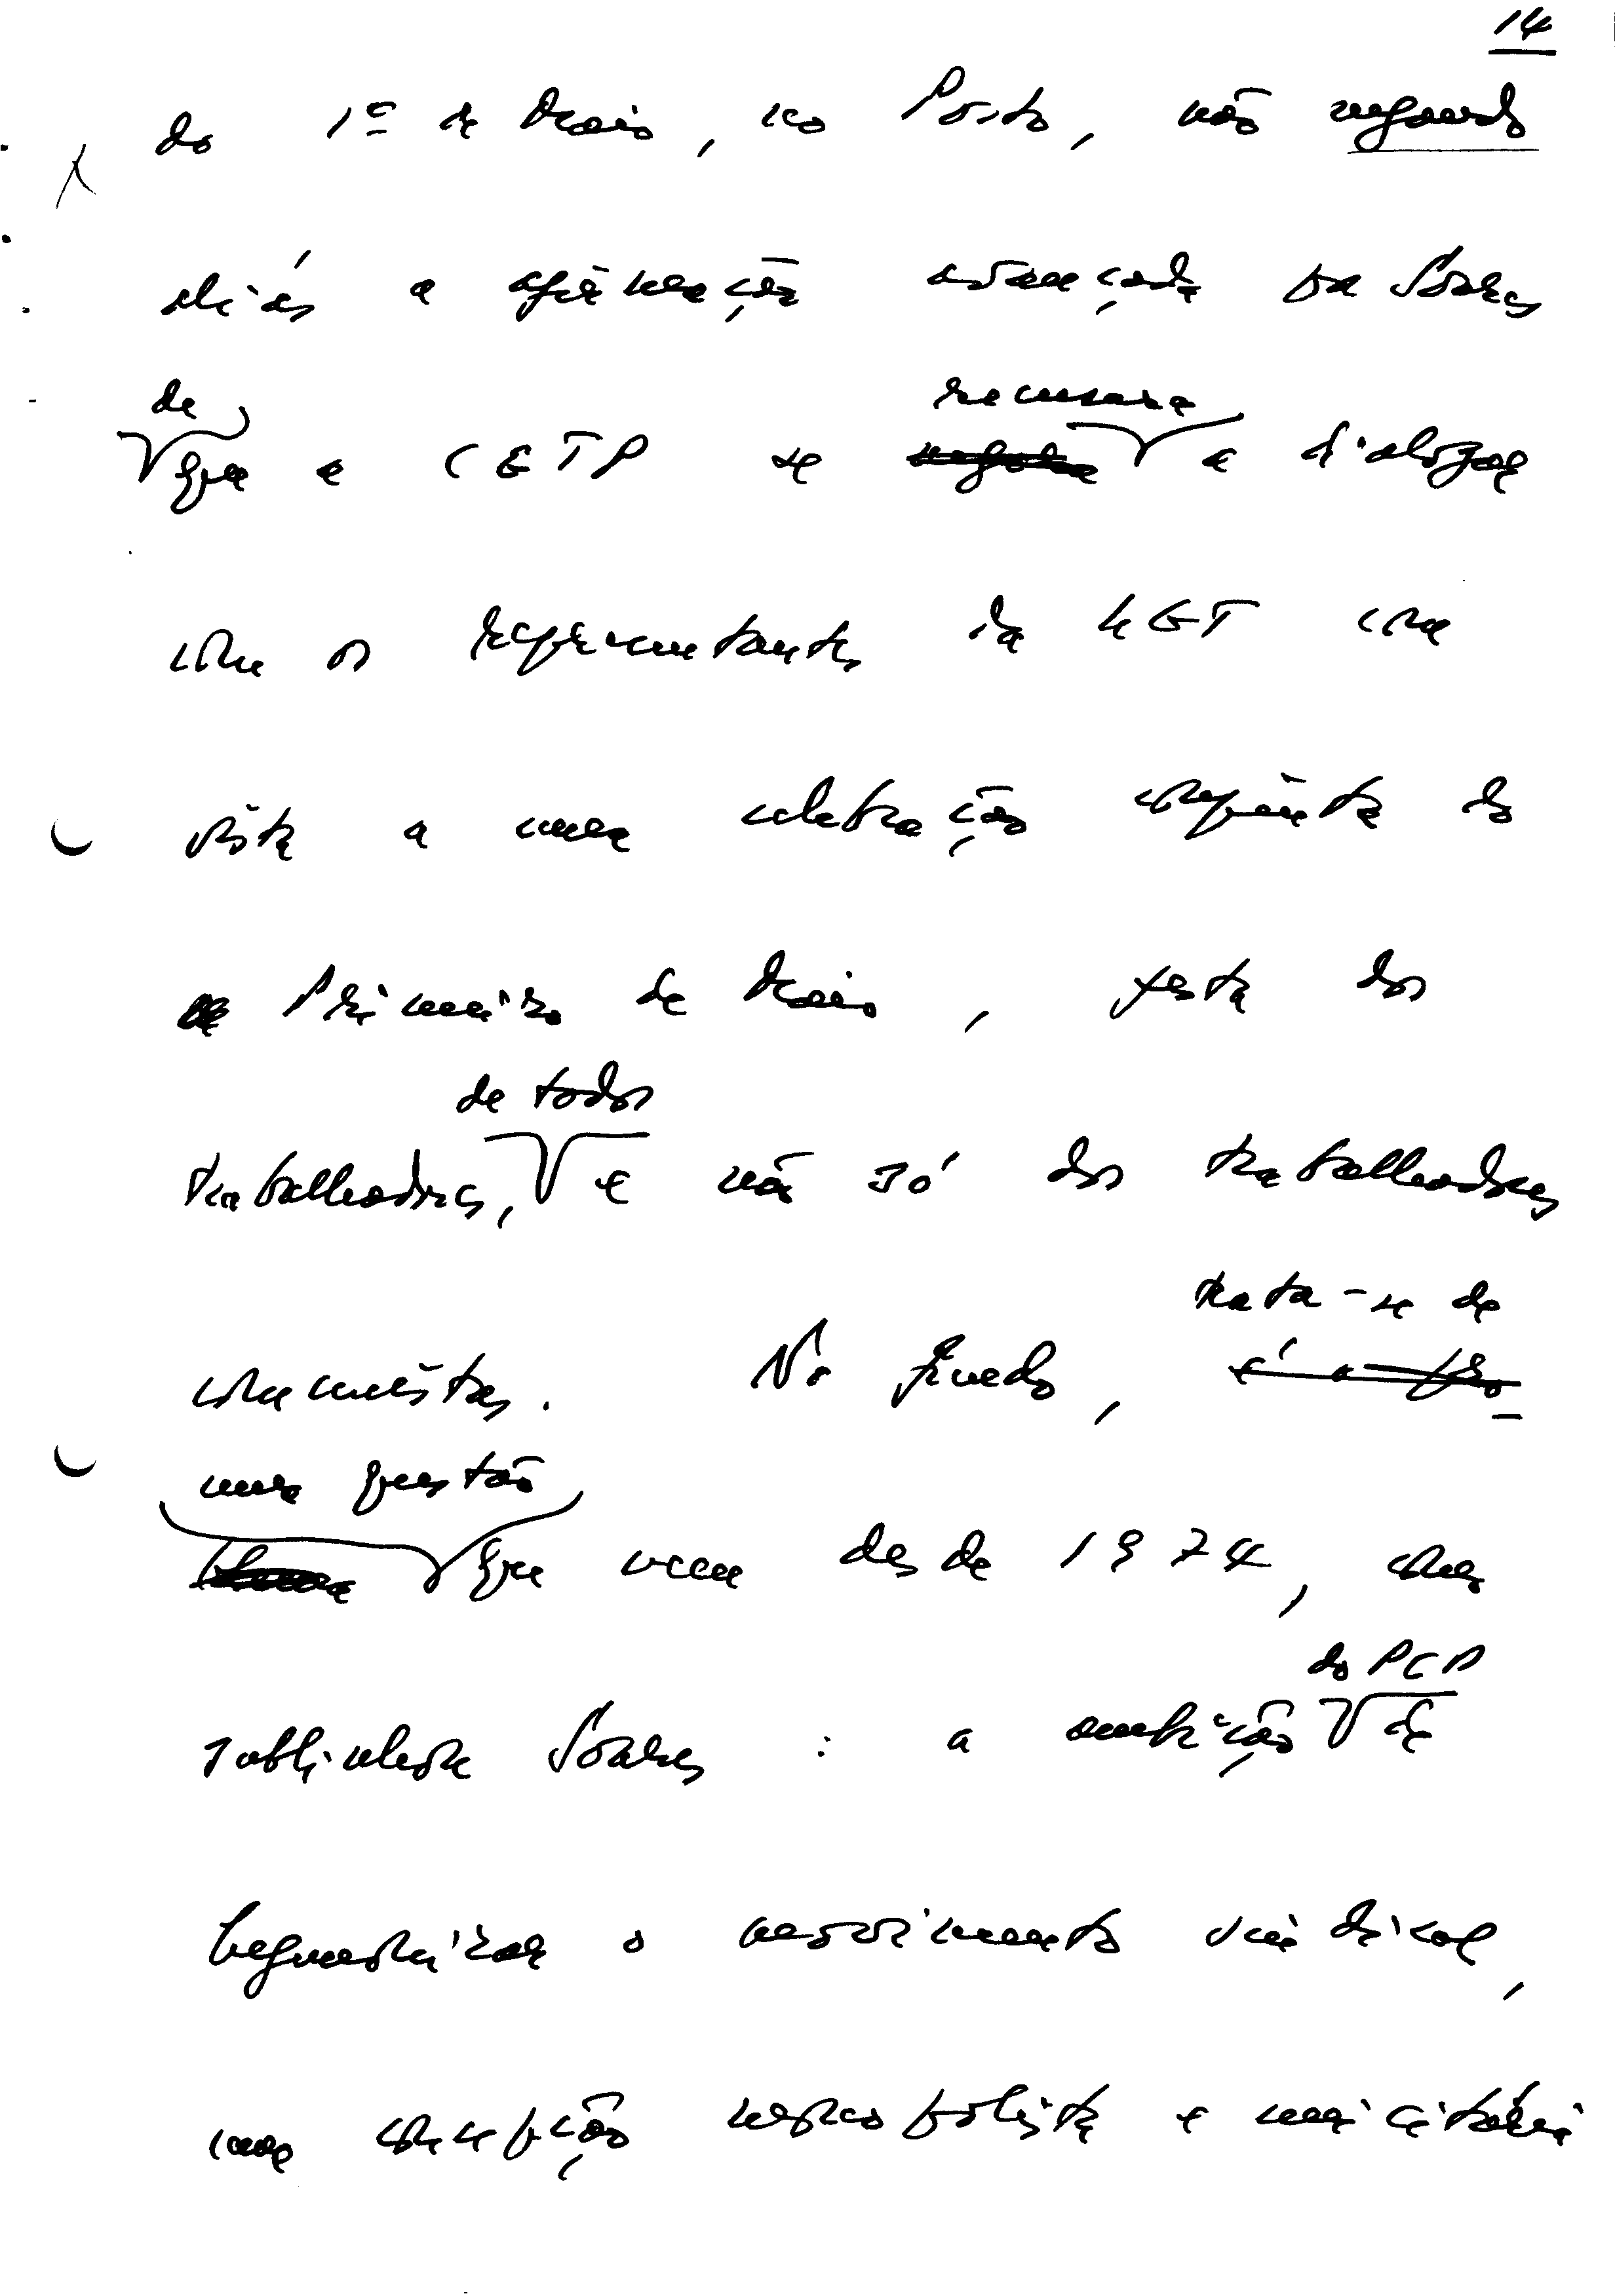 14
do 1º de Maio, no Porto, não negando
aliás a afirmação avançada por Soares
de recusara
que a CGTP se negara a dialogar
com os representantes da UGT com
vista a uma celebração conjunta do
Primeiro de Maio, festa dos
de todos
trabalhadores, e não só dos trabalhadores
trata-se de
comunistas. No fundo, é o pro-
uma questão
blema que vem desde 1974, como
do PCP
sublinhou Soares: a ambição de
hegemonizar o movimento sindical,
numa concepção monopolista e